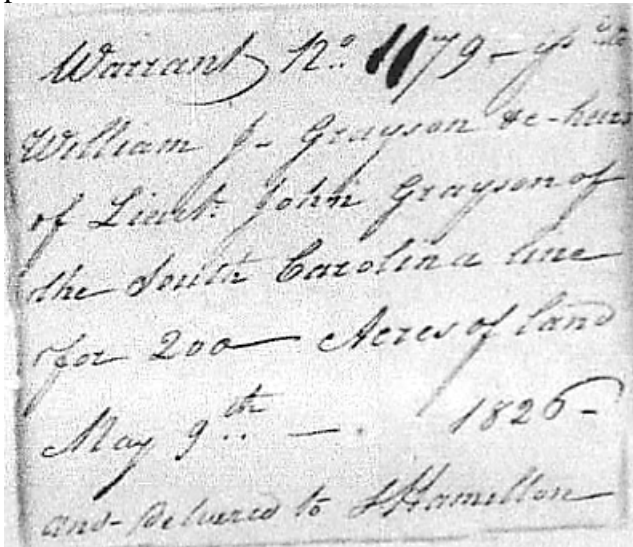 Warrant No. 1179 -
William J - Grayson &c - heirs
of Lieut. John Grayson of
the South Carolina line
for 200 — Acres of land
May 9th — . 1826 -
and - Delivered to J Hamilton